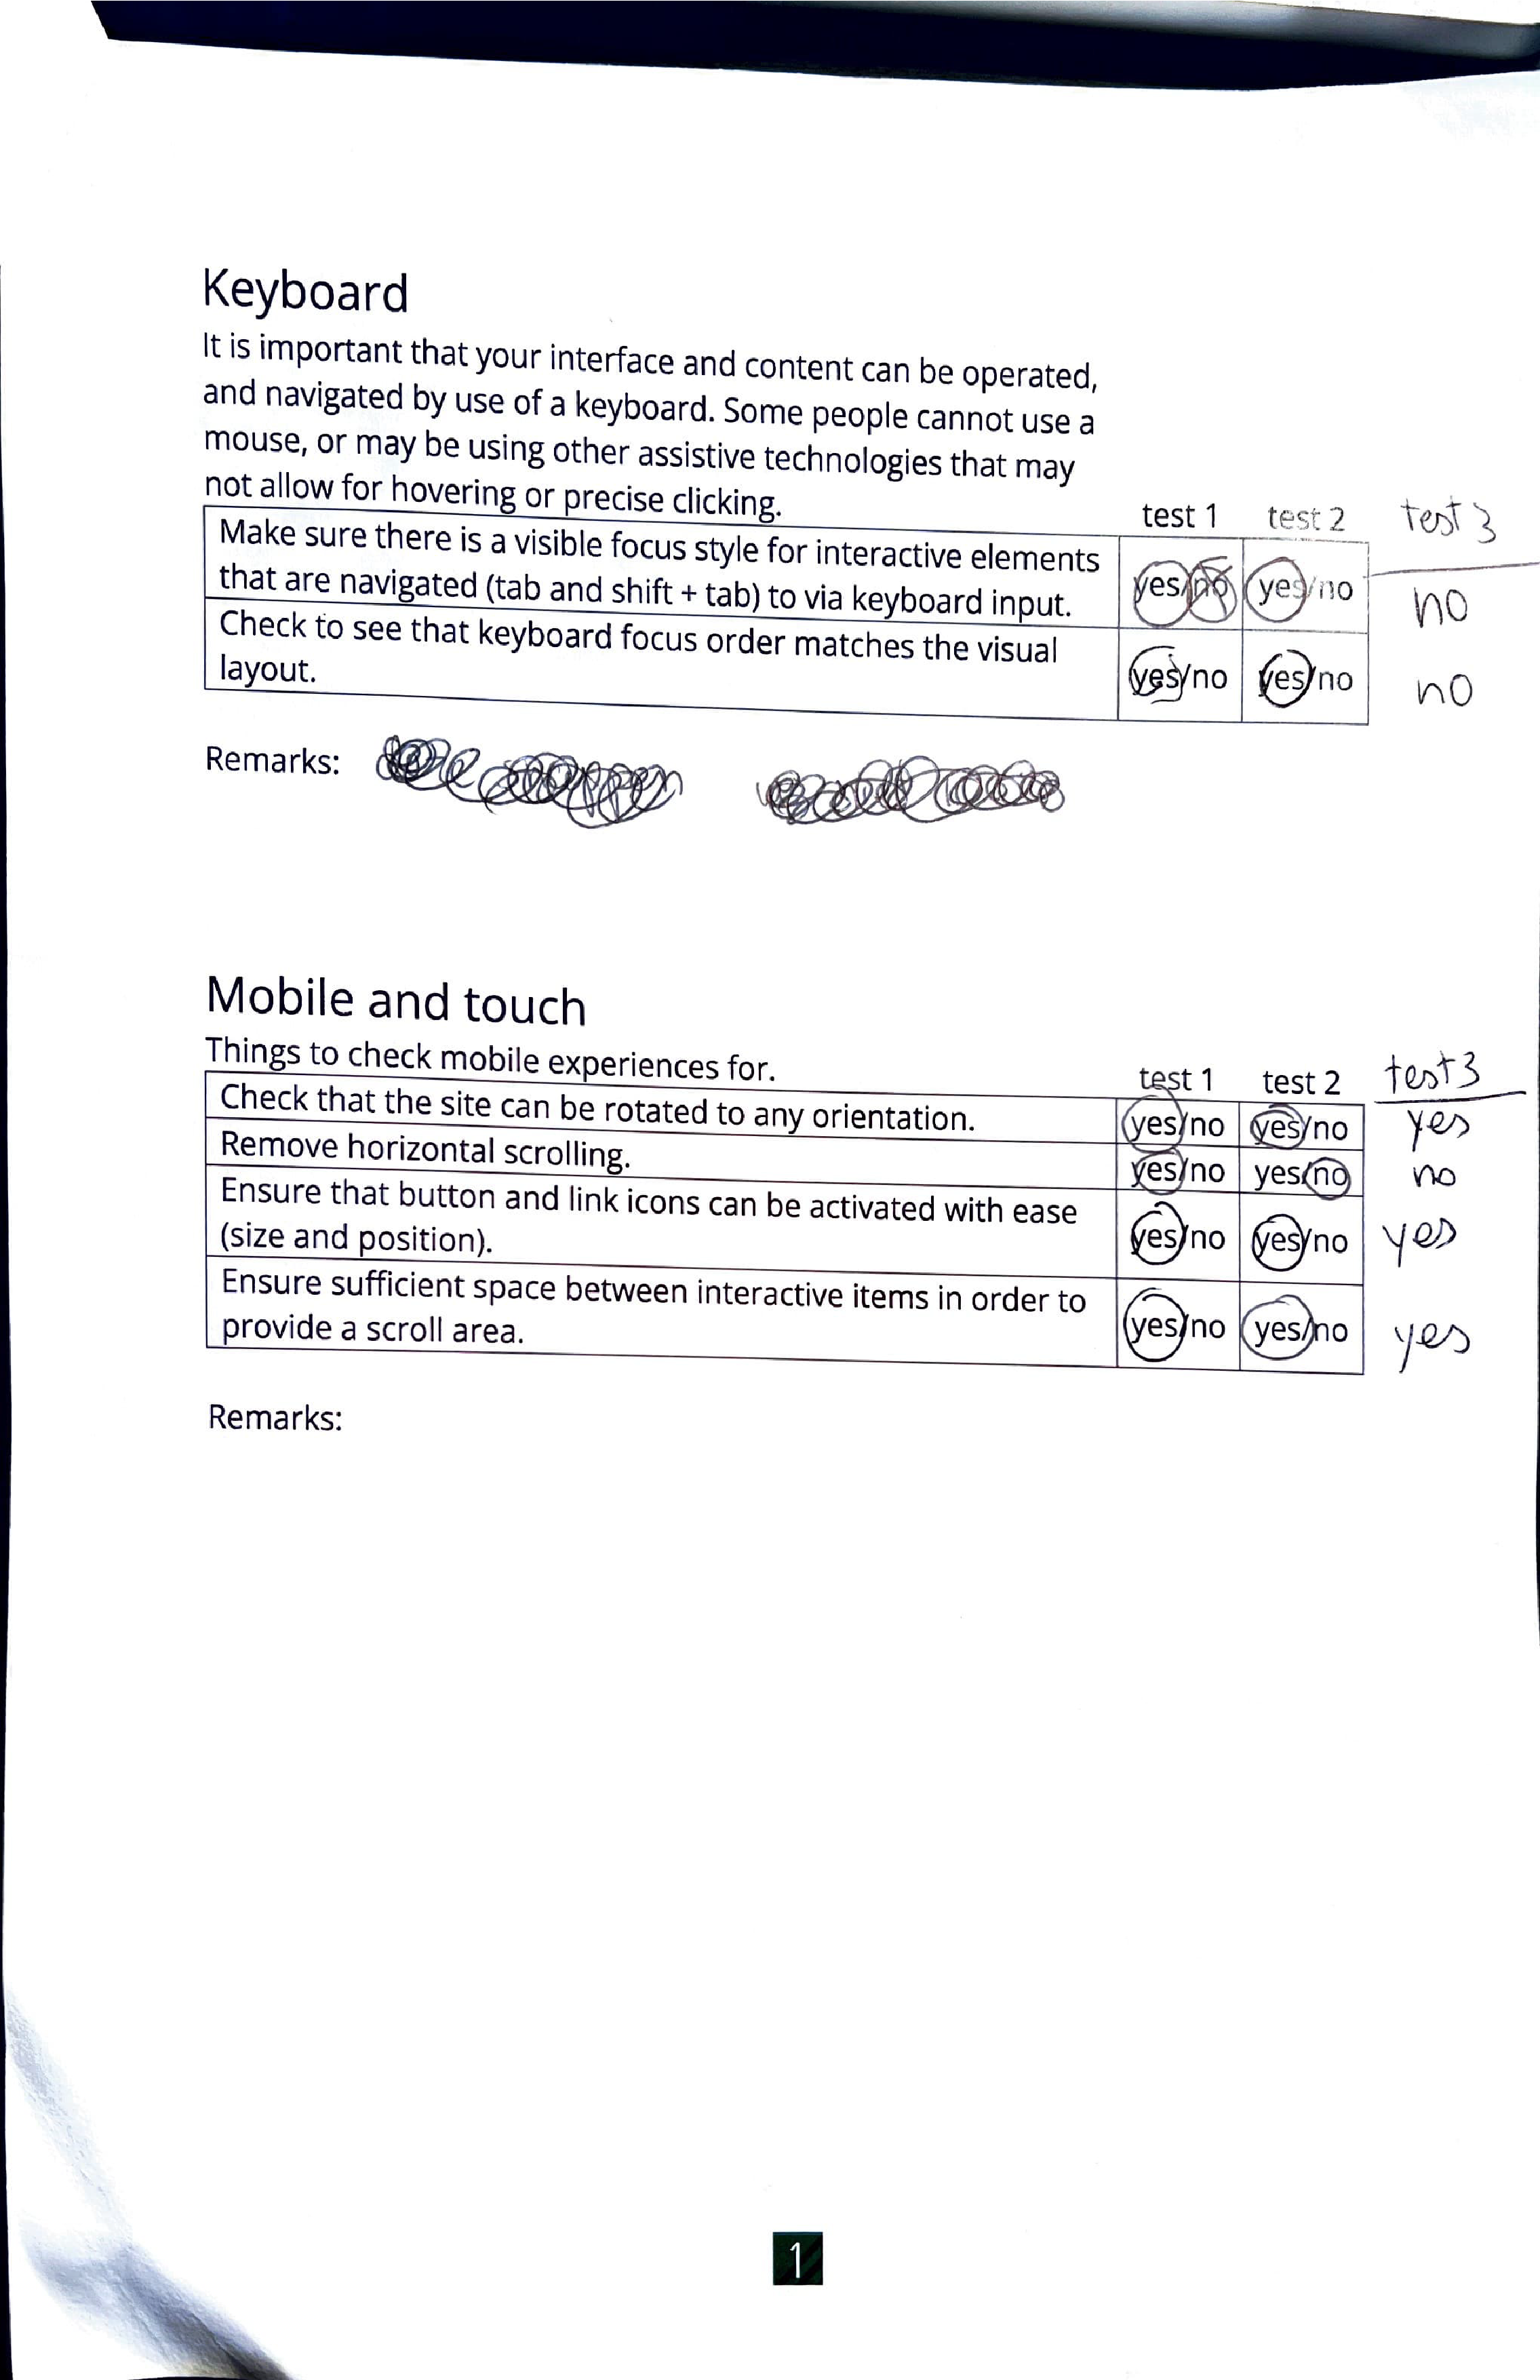 Keyboard
It is important that your interface and content can be operated,
and navigated by use of a keyboard. Some people cannot use a
mouse, or may be using other assistive technologies that may
not allow for hovering or precise clicking.
test 1 test 2 test 3
Make sure there is a visible focus style for interactive elements
that are navigated (tab and shift + tab) to via keyboard input.
yes/no yes/no no
Check to see that keyboard focus order matches the visual
layout.
yes/no yes/no no
Remarks:
Mobile and touch
Things to check mobile experiences for.
test 1 test 2 test 3
Check that the site can be rotated to any orientation. yes/no yes/no yes
Remove horizontal scrolling. yes/no yes/no no
Ensure that button and link icons can be activated with ease
(size and position).
yes/no yes/no yes
Ensure sufficient space between interactive items in order to
provide a scroll area.
yes/no yes/no yes
Remarks:
1